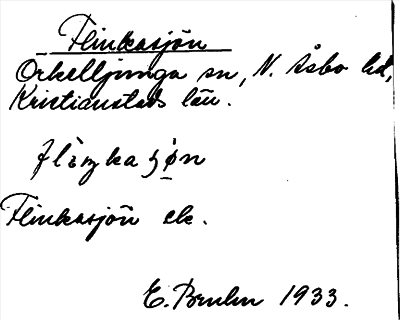 Flinkasjön
Örkelljunga sn, N. Åsbo hd,
Kristianstads län.
flìŋkaʂø̀n
Flinkasjön ek.
E. Bruhn 1933.